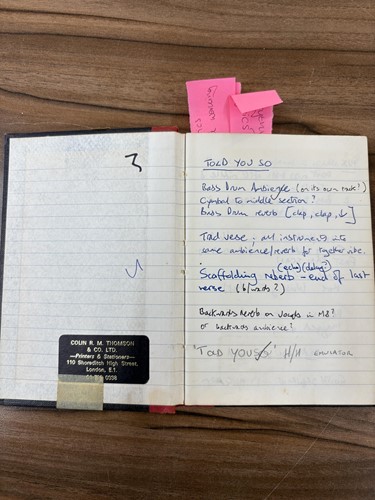 3
TOLD YOU SO
Bass Drum Ambience (on its own track?)
Cymbal to middle section?
Bass Drum reverb [clap, clap, ↓]
Tool verse: all instruments into
same ambience/reverb for together vibe.
(echo)(delay?)
Scaffolding reverb - end of last
verse (b/wards?)
Backwards reverb on vocals in M8?
or backwards ambience?
'TOLD YOU SO' H/H EMULATOR
COLIN R. M. THOMSON
& CO. LTD.
—Printers & Stationers—
110 Shoreditch High Street,
London, E.1.
0338